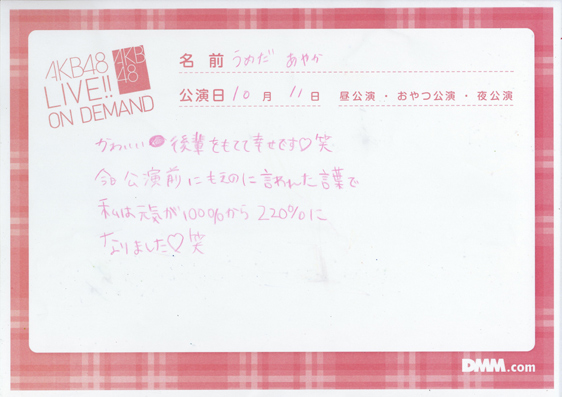 AKB48
LIVE!!
ON DEMAND
AKB
48
名前 うめだ あやか
公演日 10月 11日 昼公演・おやつ公演・夜公演
かわいい 後輩をもてて幸せです♡笑
今日公演前にもえのに言われた言葉で
私は元気が100%から220%に
なりました♡笑
DMM.com